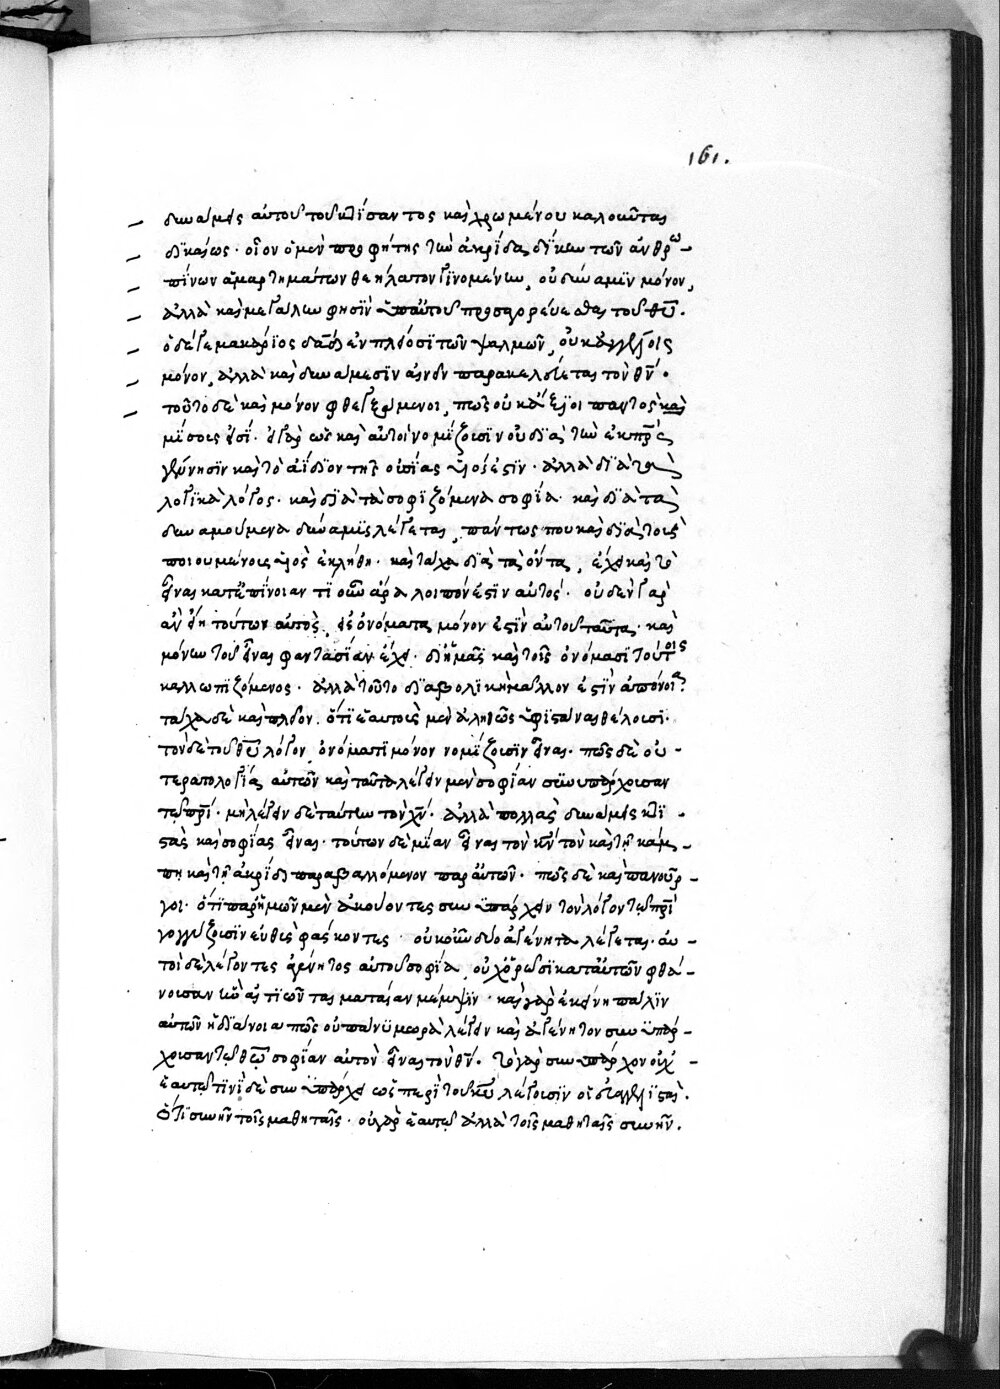 161.
δυνάμεις αὐτοῦ τοῦ κτίσαντος καὶ χρωμένου καλοῦνται
δικαίως· οἷον ὁ μὲν προφήτης τὴν ἀκρίδα, δίκην τῶν ἀνθρω-
πίνων ἁμαρτημάτων θεήλατον γινομένην, οὐ δύναμιν μόνον,
ἀλλὰ καὶ μεγάλην φησὶν ὑπ' αὐτοῦ προσαγορεύεσθαι τοῦ θῦ.
ὁ δέ γε μακάριος δαδ ἐν πλείοσι τῶν ψαλμῶν, οὐκ ἀγγέλοις
μόνον, ἀλλὰ καὶ δυνάμεσιν αἰνεῖν παρακελεύεται τὸν θν.
τοῦτο δὲ καὶ μόνον φθεγξάμενοι, πῶς οὐκ ἄξιοι παντὸς καὶ
μίσους εἰσί· εἰ γὰρ ὡς καὶ αὐτοὶ νομίζουσιν οὐ διὰ τὴν ἐκ πρς
γέννησιν καὶ τὸ ἀΐδιον τῆς οὐσίας υἱός ἐστιν· ἀλλὰ διὰ τὰ
λογικὰ λόγος· καὶ διὰ τὰ σοφιζόμενα σοφία· καὶ διὰ τὰ
δυναμούμενα δύναμις λέγεται, πάντως που καὶ διὰ τοὺς
ποιουμένους υἱὸς ἐκλήθη· καὶ τάχα διὰ τὰ ὄντα, ἔχει καὶ τὸ
εἶναι κατ' ἐπίνοιαν τί οὖν ἄρα λοιπόν ἐστιν αὐτός· οὐδὲν γὰρ
ἂν εἴη τούτων αὐτὸς, εἰ ὀνόματα μόνον ἐστὶν αὐτοῦ ταῦτα· καὶ
μόνην τοῦ εἶναι φαντασίαν ἔχει· δι' ἡμᾶς καὶ τοῖς ὀνόμασι τούτοις
καλλωπιζόμενος· ἀλλὰ τοῦτο διαβολικὴ μᾶλλον ἐστὶν ἀπόνοια
τάχα δὲ καὶ πλεῖον. ὅτι ἑαυτοὺς μὲν ἀληθῶς ὑφιστάναι θέλουσι·
τὸν δὲ τοῦ θῦ λόγον, ὀνόματι μόνον νομίζουσιν εἶναι. πῶς δὲ οὐ
τερατολογία, αὐτῶν καὶ ταῦτα λέγειν μὲν σοφίαν συνυπάρχουσαν
τῷ πρί· μὴ λέγειν δὲ ταύτην τὸν χν· ἀλλὰ πολλὰς δυνάμεις κτι-
στὰς καὶ σοφίας εἶναι· τούτων δὲ μίαν εἶναι τὸν κν τὸν καὶ τῇ κάμ-
πῃ καὶ τῇ ἀκρίδι παραβαλλόμενον παρ' αὐτῶν· πῶς δὲ καὶ πανοῦρ-
γοι· ὅτι παρ' ἡμῶν μὲν ἀκούοντες συνυπάρχειν τὸν λόγον τῷ πρί
γογγύζουσιν εὐθὺς φάσκοντες· οὐκοῦν δύο ἀγένητα λέγεται· αὐ-
τοὶ δὲ λέγοντες ἀγένητος αὐτοῦ σοφία, οὐχ ὁρῶσι καθ' αὑτῶν φθά-
νουσαν ἣν αἰτιῶνται ματαίαν μέμψιν· καὶ γὰρ ἐκείνη πάλιν
αὐτῶν ἡ διάνοια πῶς οὐ πάνυ μωρὰ λέγειν καὶ ἀγένητον συνυπάρ-
χουσαν τῷ θῶ σοφίαν αὐτὸν εἶναι τὸν θν. τὸ γὰρ συνυπάρχον οὐχ
ἑαυτῷ τινὶ δὲ συνυπάρχει ὡς περὶ τοῦ κῦ λέγουσιν οἱ εὐαγγελισταὶ.
ὅτι συνῆν τοῖς μαθηταῖς· οὐ γὰρ ἑαυτῷ ἀλλὰ τοῖς μαθηταῖς συνῆν.